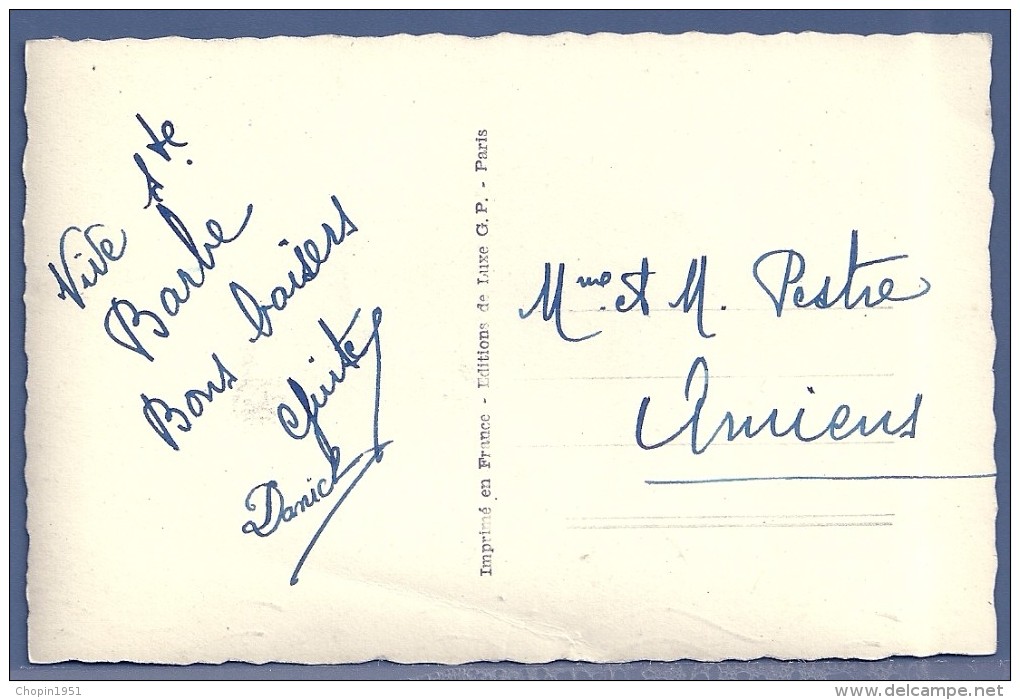 Vive Ste
Barbe
Bons baisers
Guite
Danick
Imprimé en France - Editions de Luxe G. P. - Paris
Mme et M. Pestre
Amiens
Chopin1951
www.delcampe.net